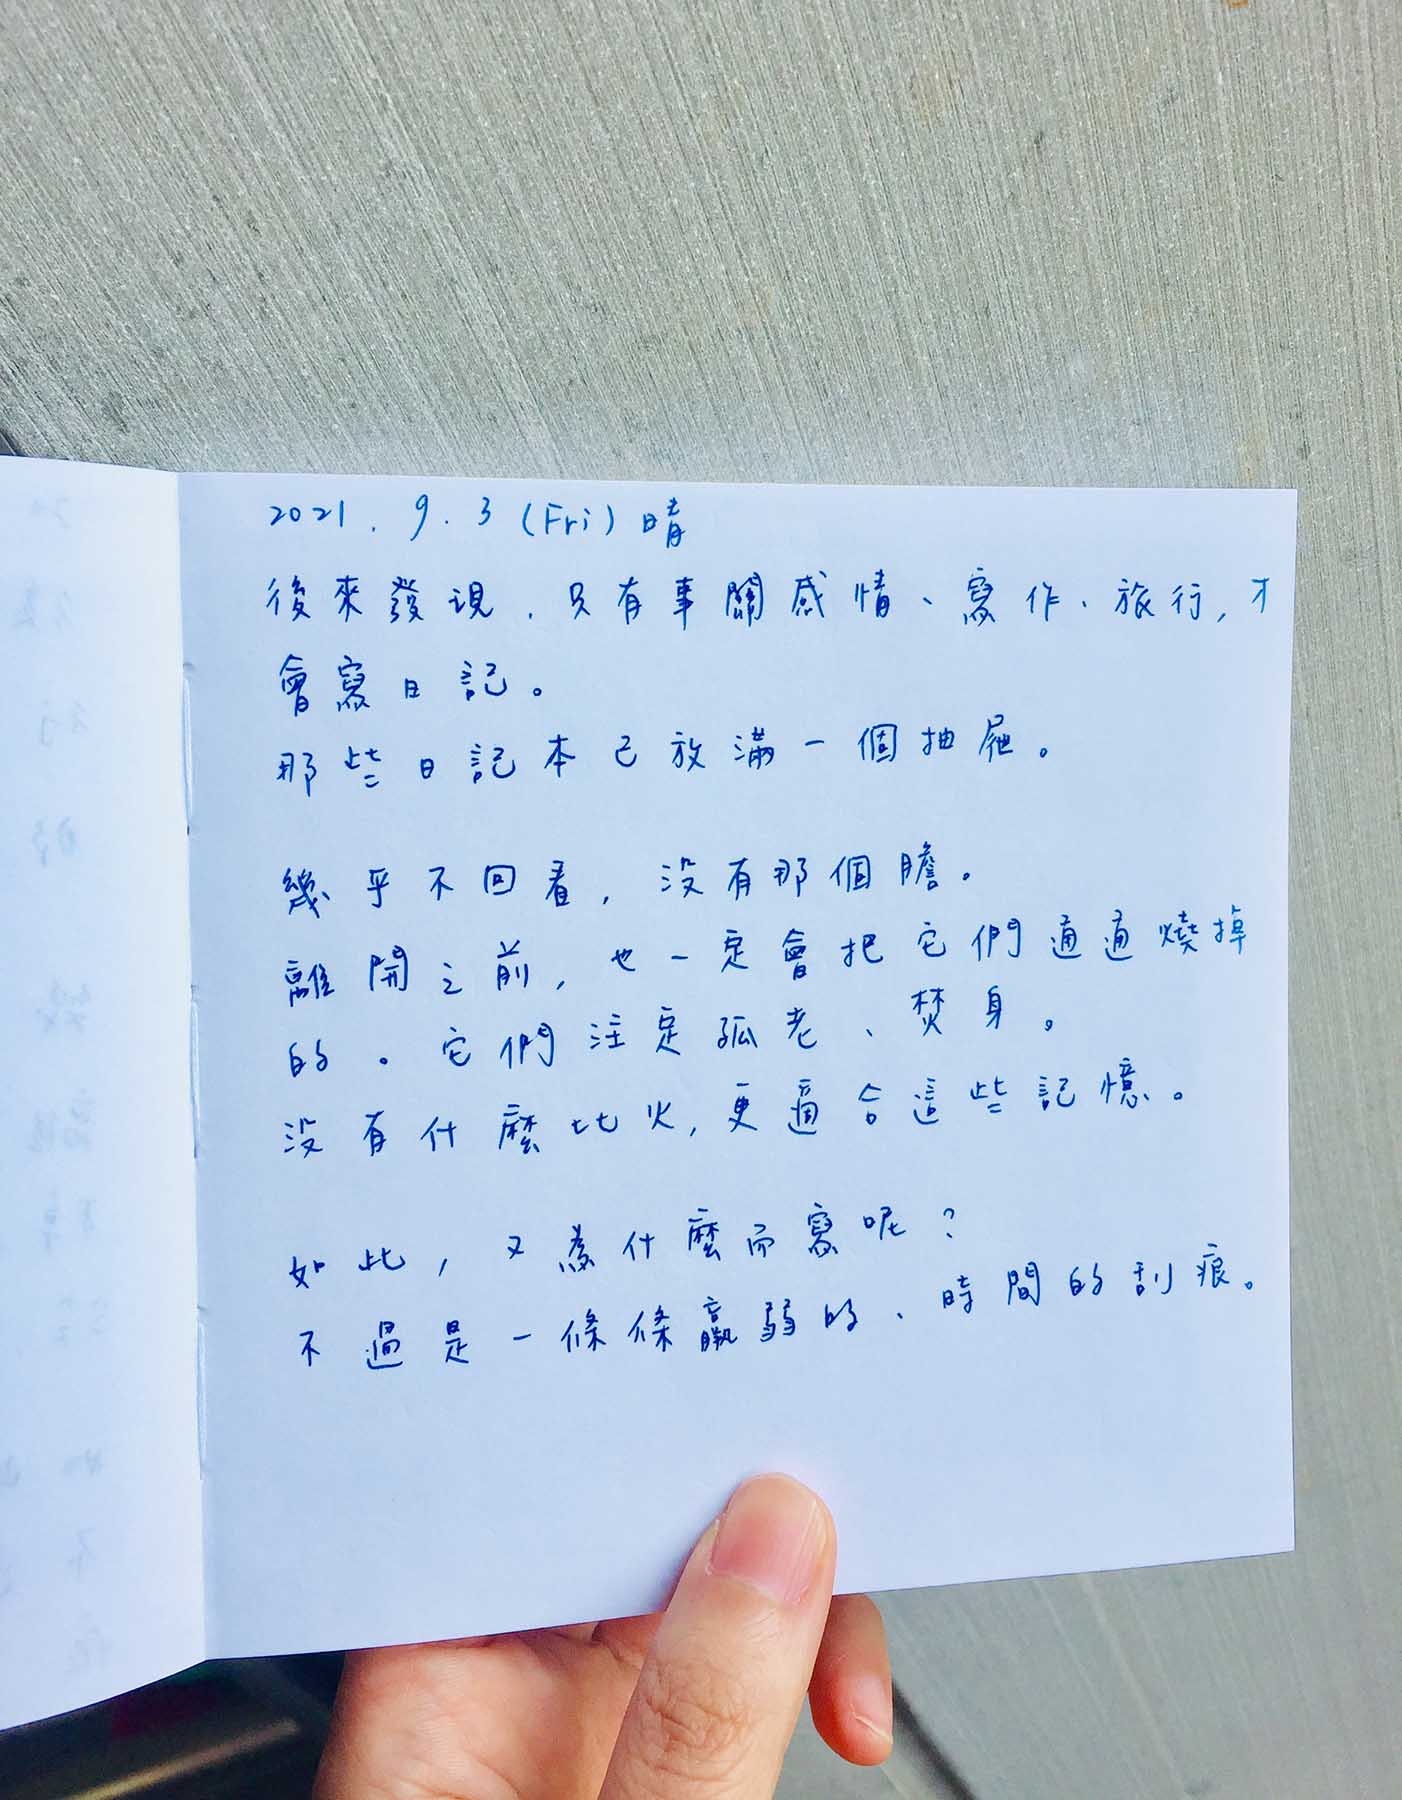 2021. 9. 3 (Fri) 晴
後來發現，只有事關感情、寫作、旅行，才
會寫日記。
那些日記本已放滿一個抽屜。
幾乎不回看，沒有那個膽。
離開之前，也一定會把它們通通燒掉
的。它們注定孤老、焚身。
沒有什麼比火，更適合這些記憶。
如此，又為什麼而寫呢？
不過是一條條羸弱的、時間的刮痕。